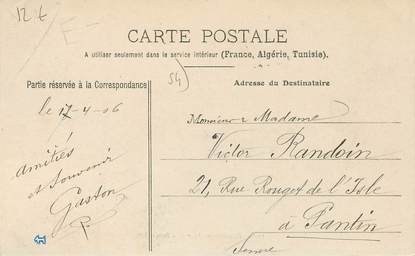 12 €
CARTE POSTALE
A utiliser seulement dans le service intérieur (France, Algérie, Tunisie).
54)
Partie réservée à la Correspondance
Adresse du Destinataire
le 17-4-06
Monsieur & Madame
Victor Randoin
21, Rue Rouget de l'Isle
à Pantin
Seine
Amitiés
et Souvenir
Gaston